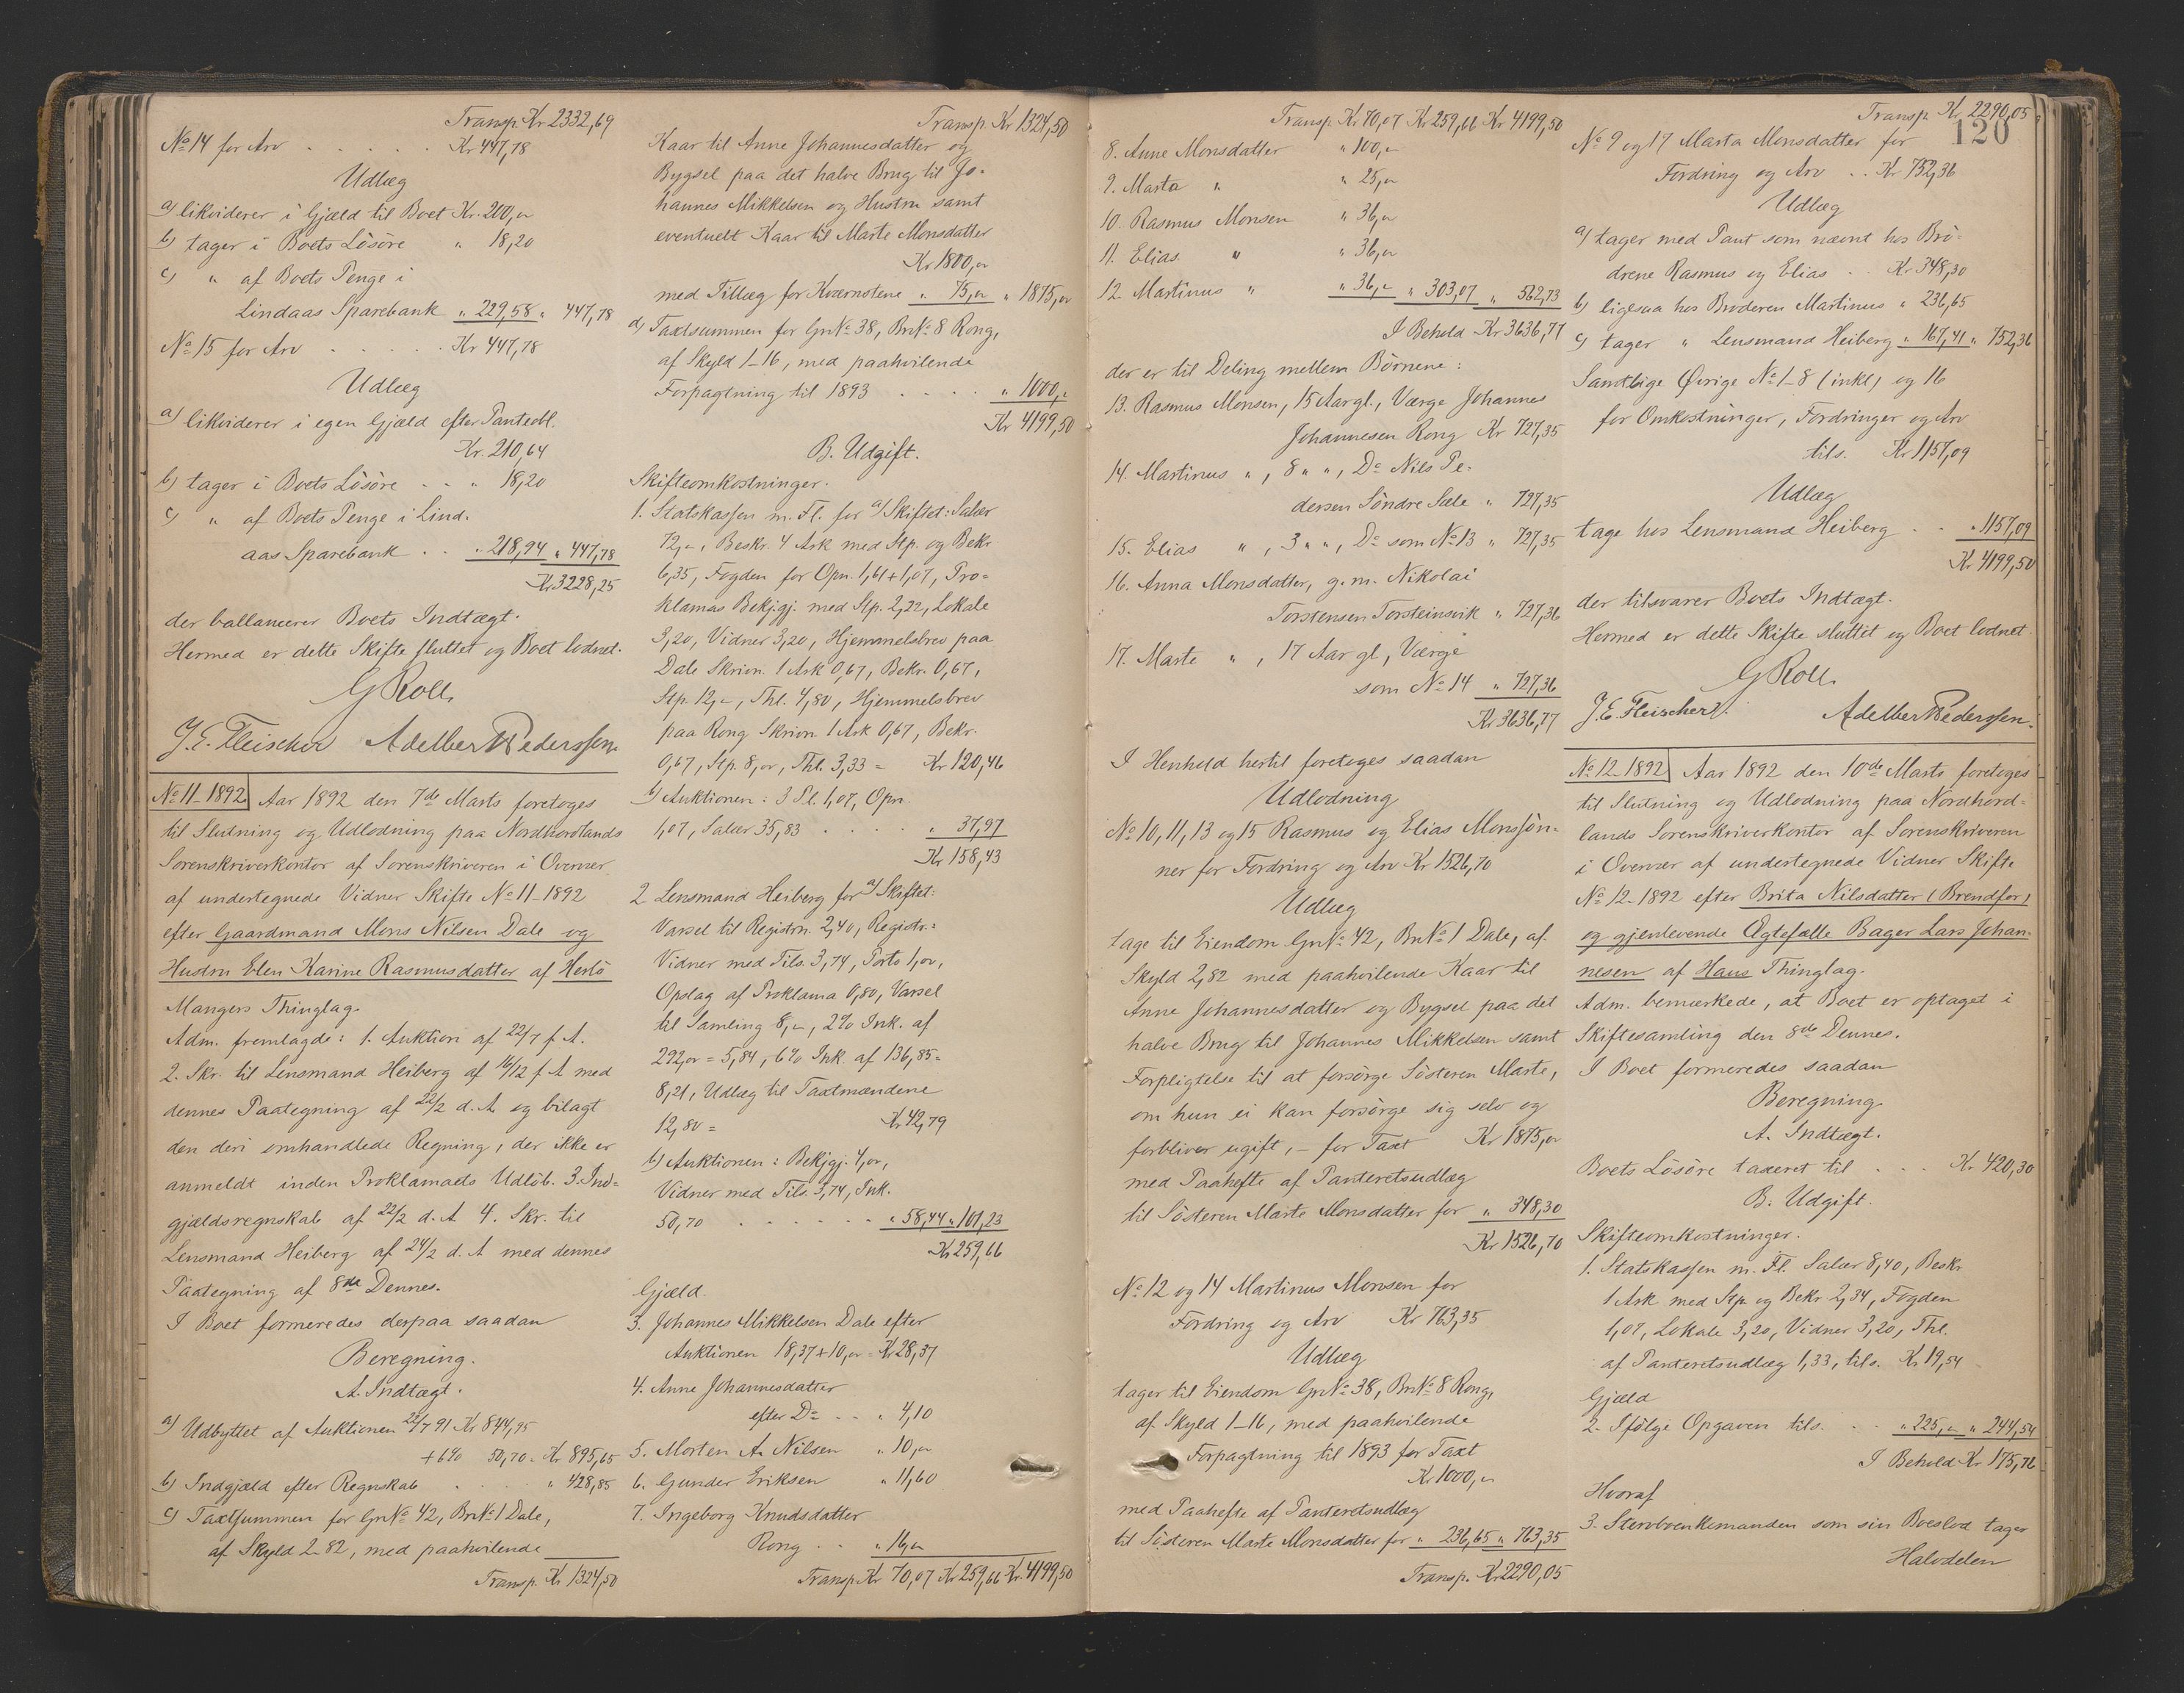 Transp. Kr 2332,69
No 14 for Arv . . . . . Kr 447,78
Udlæg
a) likviderer i Gjæld til Boet Kr. 200,"
b) tager i Boets Lösöre " 18,20
c) " af Boets Penge i
Lindaas Sparebank " 229,58 " 447,78
No 15 for Arv . . . . . Kr 447,78
Udlæg
a) likviderer i egen Gjæld efter Panteobl.
Kr. 210,64
b) tager i Boets Lösöre . . " 18,20
c) " af Boets Penge i Lind-
aas Sparebank . . " 218,94 " 447,78
Kr 3228,25
der ballancerer Boets Indtægt.
Hermed er dette Skifte sluttet og Boet lodnet.
G Roll
J. E. Fleischer Adelber Pederssen
No 11-1892 Aar 1892 den 7de Marts foretoges
til Slutning og Udlodning paa Nordhordlands
Sorenskriverkontor af Sorenskriveren i Overvær
af undertegnede Vidner Skifte No 11-1892
efter Gaardmand Mons Nilsen Dale og
Hustru Elen Karine Rasmusdatter af Herlö
Mangers Thinglag.
Adm. fremlagde: 1. Auktion af 22/7 f. A.
2. Skr. til Lensmand Heiberg af 16/12 f. A med
dennes Paategning af 22/2 d. A. og bilagt
den deri omhandlede Regning, der ikke er
anmeldt inden Proklamaets Udlöb. 3. Ind-
gjældsregnskab af 22/2 d. A 4. Skr. til
Lensmand Heiberg af 24/2 d. A med dennes
Paategning af 8de Dennes.
I Boet formeredes derpaa saadan
Beregning.
A. Indtægt.
a) Udbyttet af Auktionen 22/7 91 Kr 844,95
+ 6% 50,70 = Kr 895,65
b) Indgjæld efter Regnskab . . . . " 428,85
c) Taxtsummen for GnNo 42, BnNo 1 Dale,
af Skyld 2-82, med paahvilende
Transp. Kr 1324,50
Transp. Kr 1324,50
Kaar til Anne Johannesdatter og
Bygsel paa det halve Brug til Jo-
hannes Mikkelsen og Hustru samt
eventuelt Kaar til Marte Monsdatter
Kr 1800,"
med Tillæg for Kværnstene " 75,00 " 1875,00
d) Taxtsummen for GnNo 38, BnNo 8 Rong,
af Skyld 1-16, med paahvilende
Forpagtning til 1893 . . . . " 1000,"
Kr 4199,50
B. Udgift.
Skifteomkostninger.
1. Statskassen m. Fl. for a) Skiftet: Salær
72,-, Beskr. 4 Ark med Stp. og Bekr.
6,35, Fogden for Opn. 1,61 + 1,07, Pro-
klamas Bekjgj. med Stp. 2,22, Lokale
3,20, Vidner 3,20, Hjemmelsbrev paa
Dale Skrivn. 1 Ark 0,67, Bekr. 0,67,
Stp. 12,-, Thl. 4,80, Hjemmelsbrev
paa Rong Skrivn 1 Ark 0,67, Bekr.
0,67, Stp. 8,00, Thl. 3,33 = Kr 120,46
b) Auktionen: 3 Pl. 1,07, Opn.
1,07, Salær 35,83 . . . . . " 37,97
Kr 158,43
2. Lensmand Heiberg for a) Skiftet:
Varsel til Registrn. 2,40, Registr.:
Vidner med Tils. 3,74, Porto 1,00,
Opslag af Proklama 0,80, Varsel
til Samling 8,-, 2% Ink. af
292,00 = 5,84, 6% Ink af 136,85 =
8,21, Udlæg til Taxtmændene
12,80 = Kr 42,79
b) Auktionen: Bekjgj. 4,00,
Vidner med Tils. 3,74, Ink.
50,70 . . . . . . " 58,44 " 101,23
Kr 259,66
Gjæld.
3. Johannes Mikkelsen Dale efter
Auktionen 18,37 + 10,00 = Kr 28,37
4. Anne Johannesdatter
efter Do . . " 4,10
5. Morten A. Nilsen " 10,00
6. Gunder Eriksen " 11,60
7. Ingeborg Knudsdatter
Rong . . " 16,00
Transp. Kr 70,07 Kr 259,66 Kr 4199,50
Transp. Kr 70,07 Kr 259,66 Kr 4199,50
8. Anne Monsdatter " 100,"
9. Marta " " 25,"
10. Rasmus Monsen " 36,"
11. Elias " " 36,"
12. Martinus " " 36,- " 303,07 " 562,73
I Behold Kr 3636,77
der er til Deling mellem Börnene:
13. Rasmus Monsen, 15 Aar gl., Værge Johannes
Johannesen Rong Kr 727,35
14. Martinus ", 8 " ", Do Nils Pe-
dersen Söndre Sæle " 727,35
15. Elias ", 3 " ", Do som No 13 " 727,35
16. Anna Monsdatter, g. m. Nikolai
Torstensen Torsteinsvik " 727,36
17. Marte ", 17 Aar gl., Værge
som No 14 " 727,36
Kr 3636,77
I Henhold hertil foretoges saadan
Udlodning
No 10, 11, 13 og 15 Rasmus og Elias Monssön-
ner for Fordring og Arv Kr 1526,70
Udlæg
tage til Eiendom GnNo 42, BnNo 1 Dale, af
Skyld 2,82 med paahvilende Kaar til
Anne Johannesdatter og Bygsel paa det
halve Brug til Johannes Mikkelsen samt
Forpligtelse til at forsörge Sösteren Marte,
om hun ei kan forsörge sig selv og
forbliver ugift, - for Taxt Kr 1875,00
med Paahefte af Panteretsudlæg
til Sösteren Marte Monsdatter for " 348,30
Kr 1526,70
No 12 og 14 Martinus Monsen for
Fordring og Arv Kr 763,35
Udlæg
tager til Eiendom GnNo 38, BnNo 8 Rong,
af Skyld 1-16, med paahvilende
Forpagtning til 1893 for Taxt
Kr 1000,"
med Paahefte af Panteretsudlæg
til Sösteren Marte Monsdatter for " 236,65 " 763,35
Transp. Kr 2290,05
Transp. Kr. 2290,05
120
No 9 og 17 Marta Monsdatter for
Fordring og Arv . . Kr 752,36
Udlæg
a) tager med Pant som nævnt hos Brö-
drene Rasmus og Elias . . Kr 348,30
b) ligesaa hos Broderen Martinus " 236,65
c) tager " Lensmand Heiberg " 167,41 " 752,36
Samtlige Øvrige No 1-8 (inkl) og 16
for Omkostninger, Fordringer og Arv
tils. Kr 1157,09
Udlæg
tage hos Lensmand Heiberg . . " 1157,09
Kr 4199,50
der tilsvarer Boets Indtægt.
Hermed er dette Skifte sluttet og Boet lodnet.
G Roll
J. E. Fleischer Adelber Pederssen
No 12-1892 Aar 1892 den 10de Marts foretoges
til Slutning og Udlodning paa Nordhord-
lands Sorenskriverkontor af Sorenskriveren
i Overvær af undertegnede Vidner Skifte
No 12-1892 efter Brita Nilsdatter (Brendfor)
og gjenlevende Ægtefælle Bager Lars Johan-
nesen af Haus Thinglag.
Adm. bemærkede, at Boet er optaget i
Skiftesamling den 8de Dennes.
I Boet formeredes saadan
Beregning.
A. Indtægt.
Boets Lösöre taxeret til . . . Kr. 420,30
B. Udgift.
Skifteomkostninger.
1. Statskassen m. Fl. Salær 8,40, Beskr.
1 Ark med Stp. og Bekr. 2,34, Fogden
1,07, Lokale 3,20, Vidner 3,20, Thl.
af Panteretsudlæg 1,33, tils. Kr 19,54
Gjæld
2. Ifölge Opgaven tils. . . " 225,- " 244,54
I Behold Kr 175,76
Hvoraf
3. Stervboenkemanden som sin Boeslod tager
Halvdelen